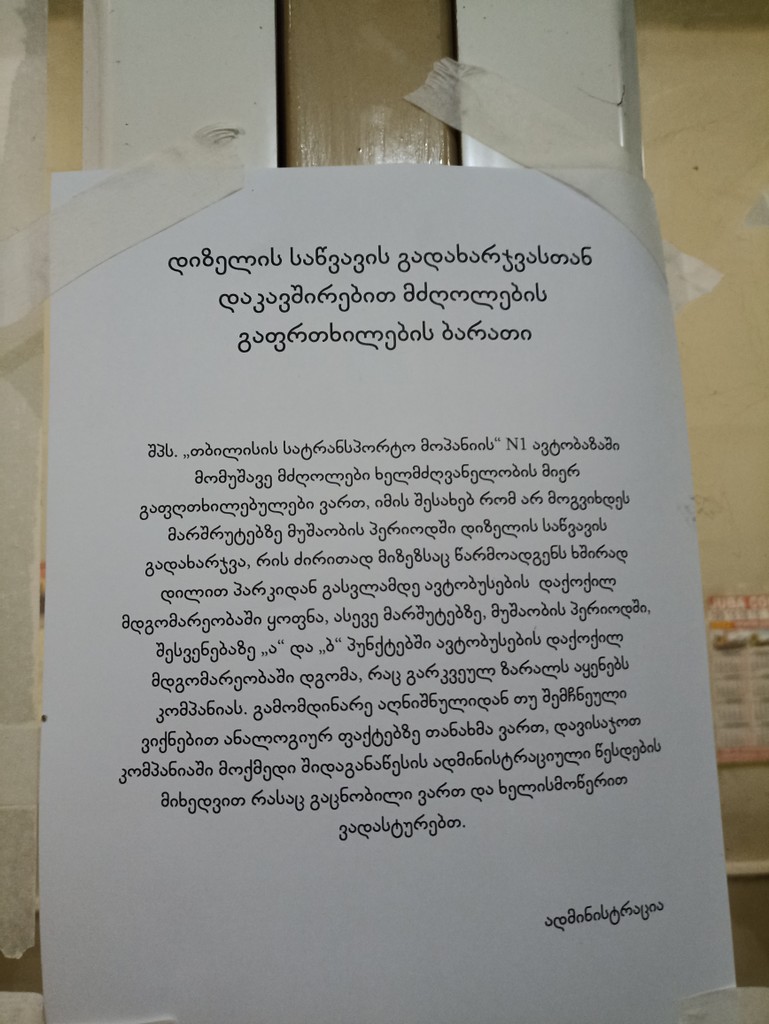 დიზელის საწვავის გადახარჯვასთან
დაკავშირებით მძღოლების
გაფრთხილების ბარათი
შპს. „თბილისის სატრანსპორტო მოპანიის“ N1 ავტობაზაში
მომუშავე მძღოლები ხელმძღვანელობის მიერ
გაფღთხილებულები ვართ, იმის შესახებ რომ არ მოგვიხდეს
მარშრუტებზე მუშაობის პერიოდში დიზელის საწვავის
გადახარჯვა, რის ძირითად მიზეზსაც წარმოადგენს ხშირად
დილით პარკიდან გასვლამდე ავტობუსების დაქოქილ
მდგომარეობაში ყოფნა, ასევე მარშუტებზე, მუშაობის პერიოდში,
შესვენებაზე „ა“ და „ბ“ პუნქტებში ავტობუსების დაქოქილ
მდგომარეობაში დგომა, რაც გარკვეულ ზარალს აყენებს
კომპანიას. გამომდინარე აღნიშნულიდან თუ შემჩნეული
ვიქნებით ანალოგიურ ფაქტებზე თანახმა ვართ, დავისაჯოთ
კომპანიაში მოქმედი შიდაგანაწესის ადმინისტრაციული წესდების
მიხედვით რასაც გაცნობილი ვართ და ხელისმოწერით
ვადასტურებთ.
ადმინისტრაცია